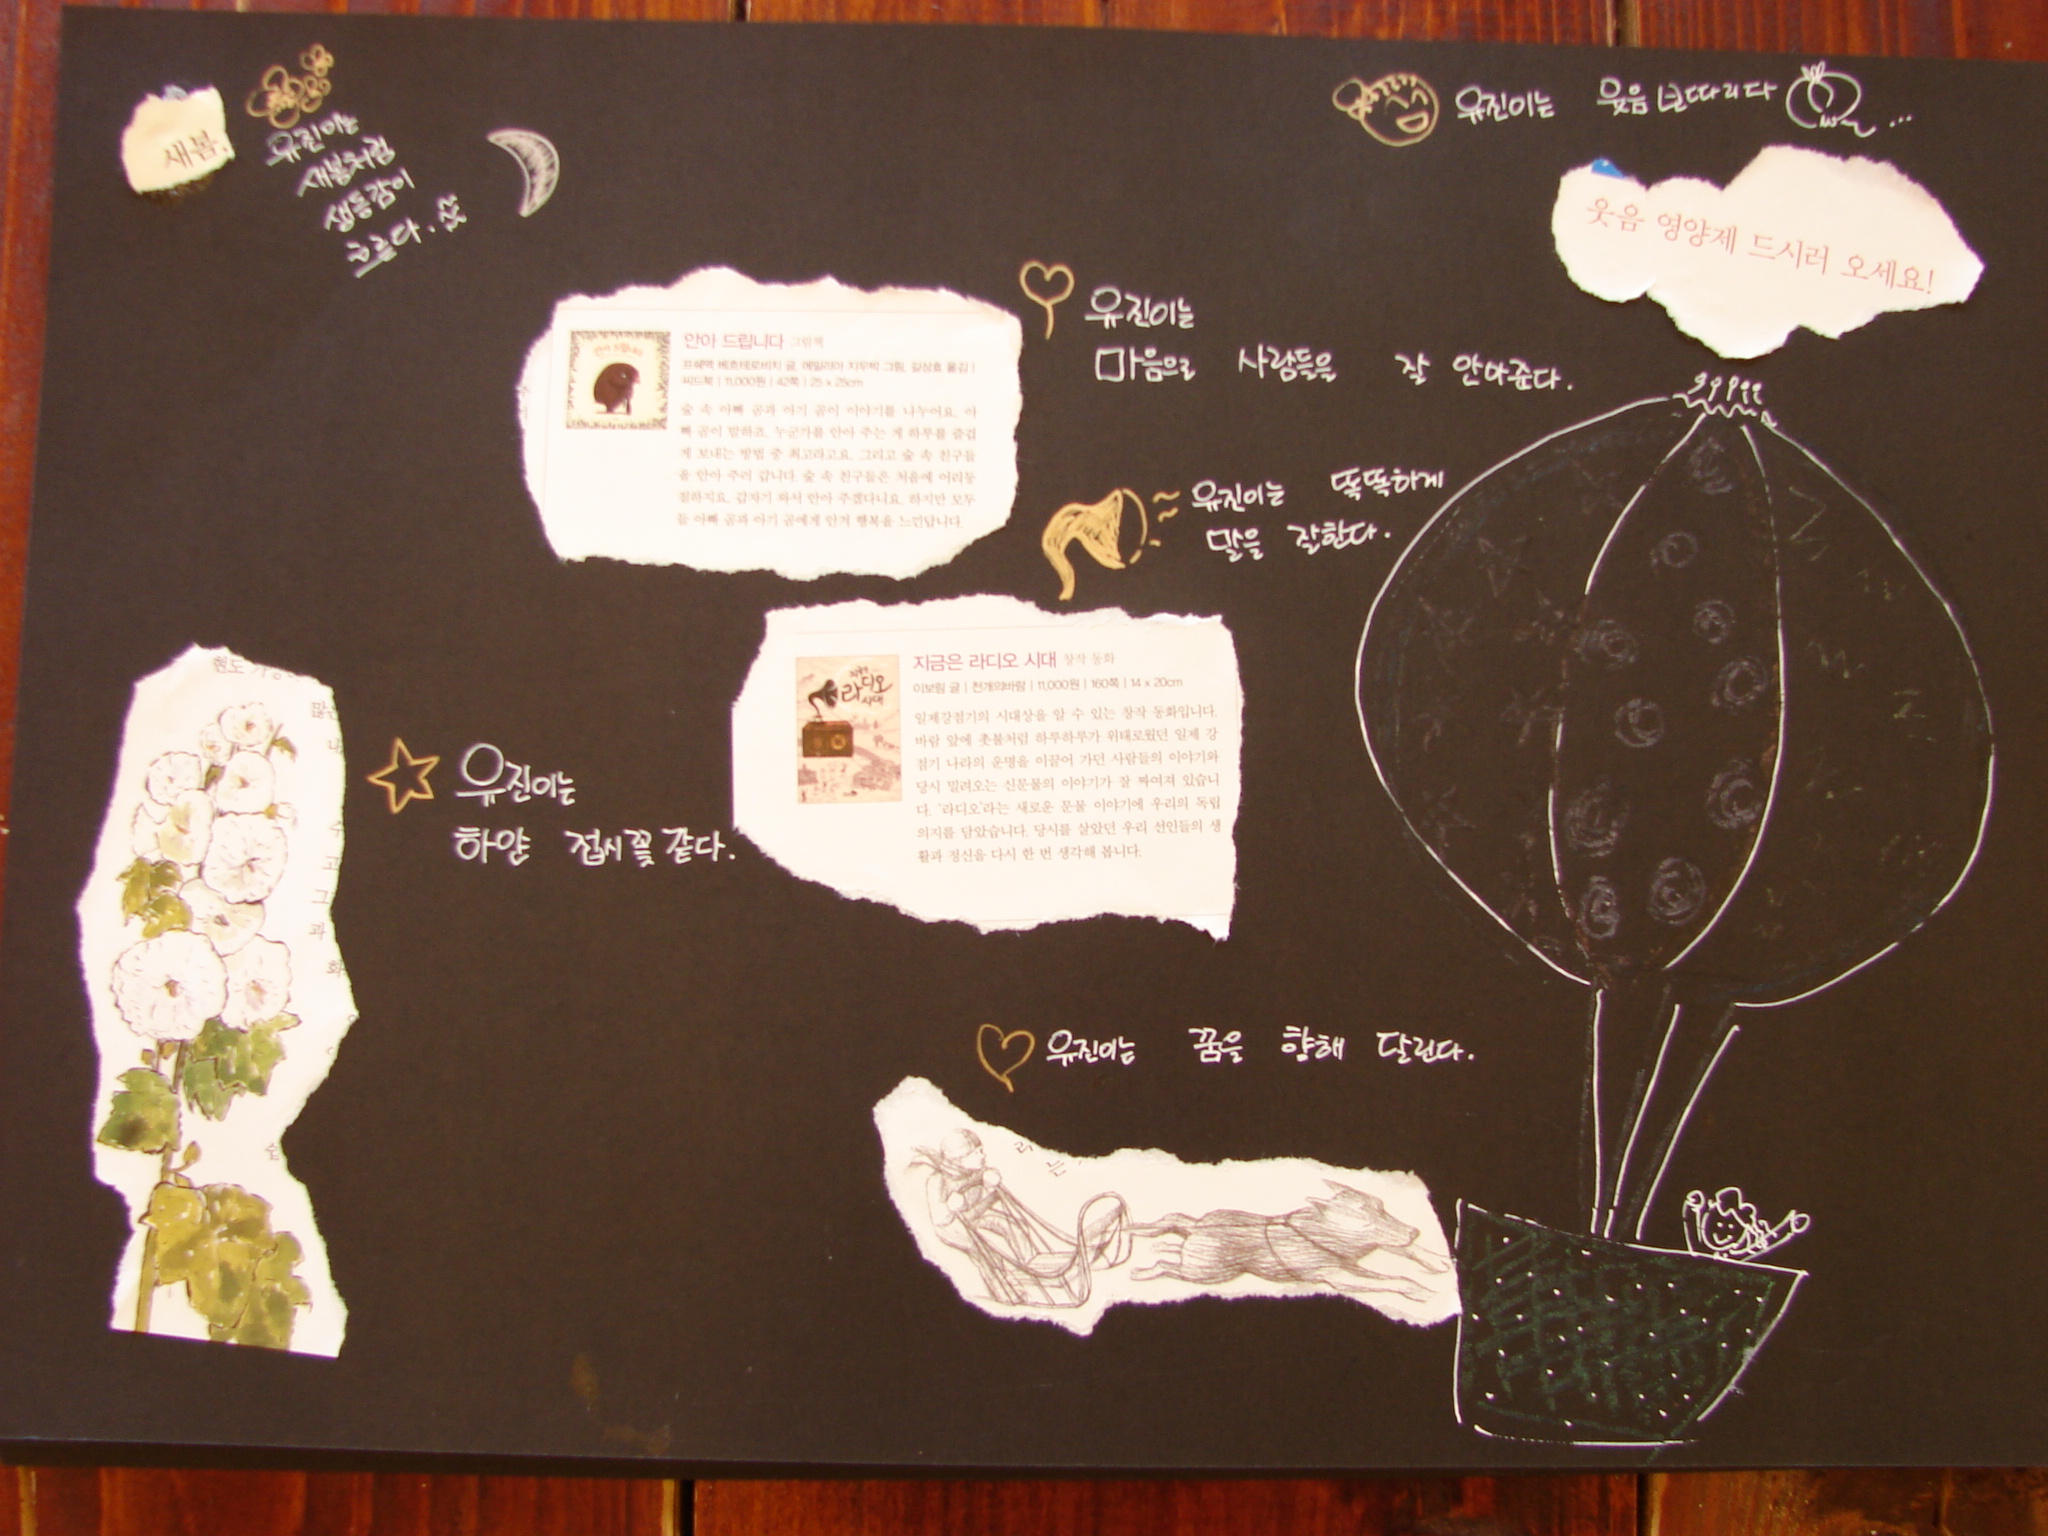 새봄.
유진이는
새봄처럼
생동감이
흐른다.
유진이는 웃음 보따리다 ...
웃음 영양제 드시러 오세요!
안아 드립니다 그림책
프셰맥 베흐테로비치 글, 에밀리아 지우박 그림, 김상효 옮김 |
씨드북 | 11,000원 | 42쪽 | 25 x 25cm
숲 속 아빠 곰과 아기 곰이 이야기를 나누어요. 아
빠 곰이 말하죠. 누군가를 안아 주는 게 하루를 즐겁
게 보내는 방법 중 최고라고요. 그리고 숲 속 친구들
을 안아 주러 갑니다. 숲 속 친구들은 처음에 어리둥
절하지요. 갑자기 와서 안아 주겠다니요. 하지만 모두
들 아빠 곰과 아기 곰에게 안겨 행복을 느낀답니다.
안아 드립니다
유진이는
마음으로 사람들을 잘 안아준다.
유진이는 똑똑하게
말을 잘한다.
지금은 라디오 시대 창작 동화
이보림 글 | 천개의바람 | 11,000원 | 160쪽 | 14 x 20cm
일제강점기의 시대상을 알 수 있는 창작 동화입니다.
바람 앞에 촛불처럼 하루하루가 위태로웠던 일제 강
점기 나라의 운명을 이끌어 가던 사람들의 이야기와
당시 밀려오는 신문물의 이야기가 잘 짜여져 있습니
다. '라디오'라는 새로운 문물 이야기에 우리의 독립
의지를 담았습니다. 당시를 살았던 우리 선인들의 생
활과 정신을 다시 한 번 생각해 봅니다.
지금은
라디오
시대
유진이는
하얀 접시꽃 같다.
수
고
그
과
화
숨
유진이는 꿈을 향해 달린다.